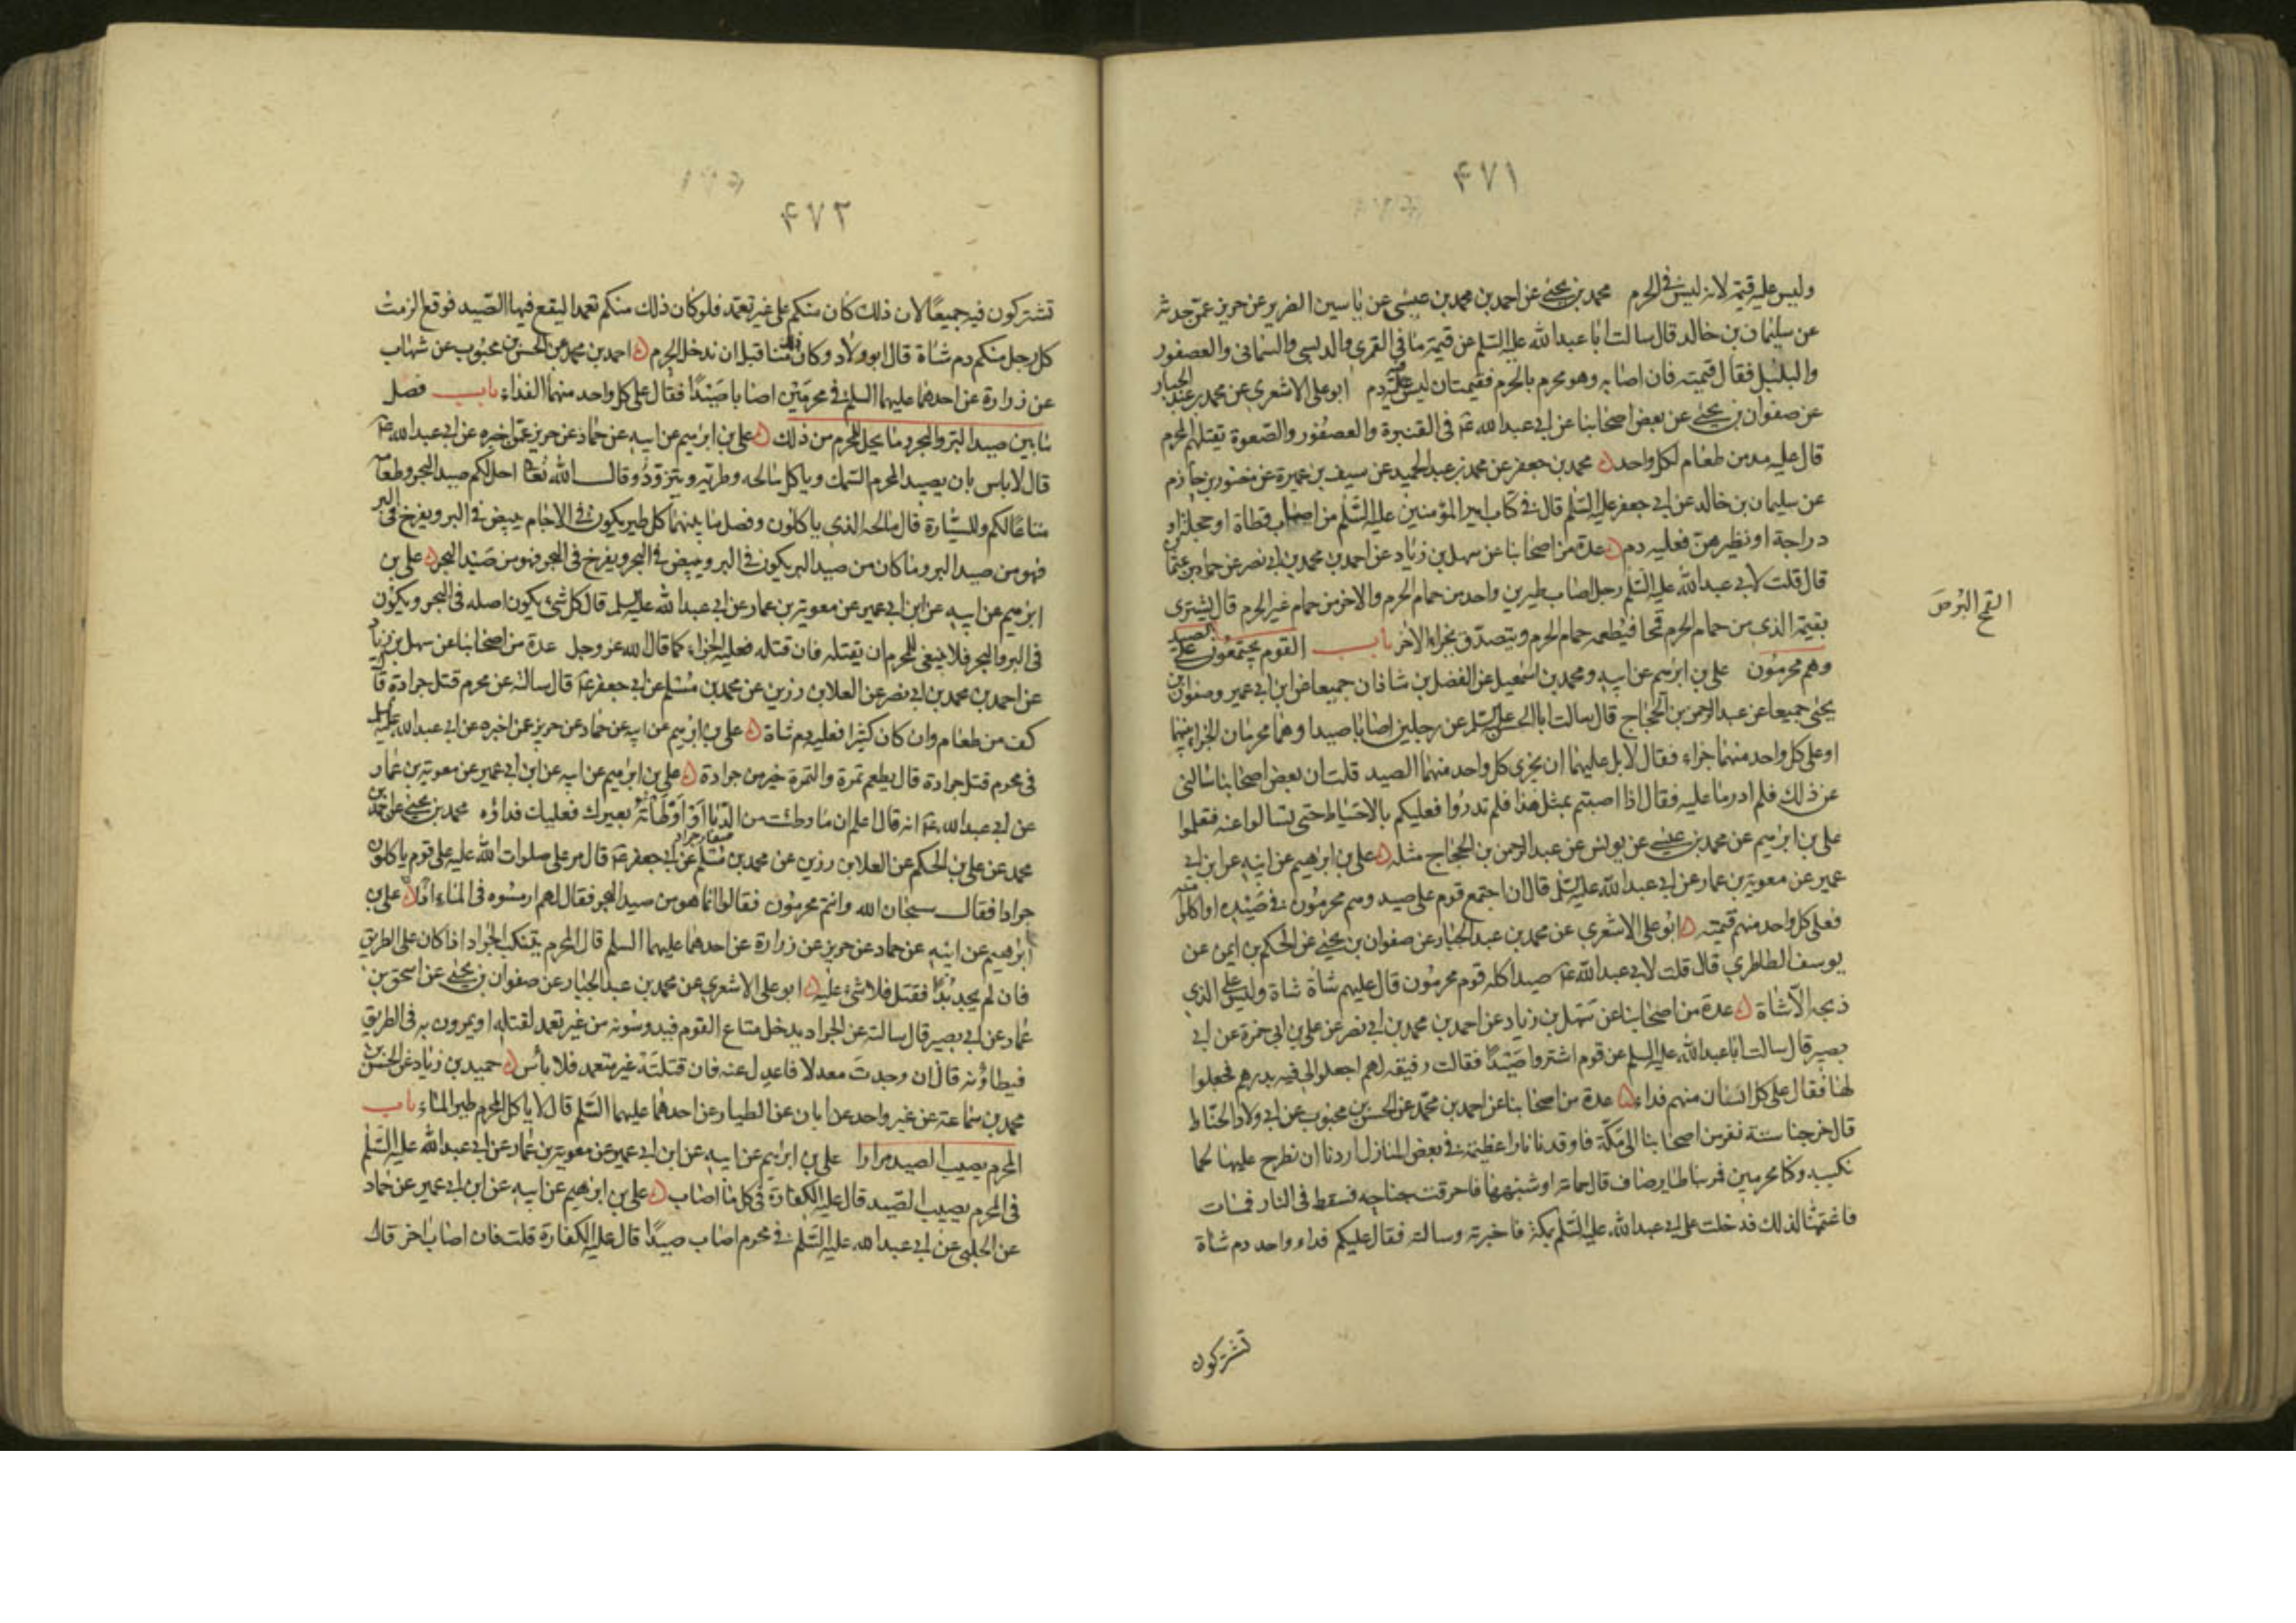 ۴۷۱
وليس عليه قيمة لانه ليس في الحرم محمد بن يحيى عن احمد بن محمد بن عيسى عن ياسين الضرير عن حريز عمن حدثه
عن سليمان بن خالد قال سالت ابا عبدالله عليه السلم عن قيمة ما في القمري والدبسي والسماني والعصفور
والبلبل فقال قيمته فان اصابه وهو محرم بالحرم فقيمتان ليس عليه فيه دم ابو علي الاشعري عن محمد بن عبد الجبار
عن صفوان بن يحيى عن بعض اصحابنا عن ابي عبدالله ع في القنبرة والعصفور والصعوة تقتلهم المحرم
قال عليه مد من طعام لكل واحد محمد بن جعفر عن محمد بن عبد الحميد عن سيف بن عميرة عن منصور بن حازم
عن سليمان بن خالد عن ابي جعفر عليه السلم قال في كتاب امير المؤمنين عليه السلم من اصاب قطاة او حجلة او
دراجة او نظيرهن فعليه دم عدة من اصحابنا عن سهل بن زياد عن احمد بن محمد بن ابي نصر عن حماد بن عثمان
قال قلت لابي عبدالله عليه السلم رجل اصاب طيرين واحد من حمام الحرم والاخر من حمام غير الحرم قال يشتري
بقيمة الذي من حمام الحرم قمحا فيطعمه حمام الحرم ويتصدق بجزاء الاخر باب القوم يجتمعون على الصيد
القمح البر ص
وهم محرمون علي بن ابرهيم عن ابيه ومحمد بن اسمعيل عن الفضل بن شاذان جميعا عن ابن ابي عمير وصفوان بن
يحيى جميعا عن عبد الرحمن بن الحجاج قال سالت ابا الحسن عليه السلم عن رجلين اصابا صيدا وهما محرمان الجزاء بينهما
او على كل واحد منهما جزاء فقال لا بل عليهما ان يجزى كل واحد منهما الصيد قلت ان بعض اصحابنا سالني
عن ذلك فلم ادر ما عليه فقال اذا اصبتم بمثل هذا فلم تدروا فعليكم بالاحتياط حتى تسالوا عنه فتعلموا
علي بن ابرهيم عن محمد بن عيسى عن يونس عن عبد الرحمن بن الحجاج مثله علي بن ابرهيم عن ابيه عن ابن ابي
عمير عن معوية بن عمار عن ابي عبدالله عليه السلم قال ان اجتمع قوم على صيد وهم محرمون في صيده او اكلوا منه
فعلى كل واحد منهم قيمته ابو علي الاشعري عن محمد بن عبد الجبار عن صفوان بن يحيى عن الحكم بن ايمن عن
يوسف الطاطري قال قلت لابي عبدالله ع صيد اكله قوم محرمون قال عليهم شاة شاة وليس على الذي
ذبحه الا شاة عدة من اصحابنا عن سهل بن زياد عن احمد بن محمد بن ابي نصر عن علي بن ابي حمزة عن ابي
بصير قال سالت ابا عبدالله عليه السلم عن قوم اشتروا صيدا فقالت رفيقة لهم اجعلوا لي فيه بدرهم فجعلوا
لها فقال على كل انسان منهم فداء عدة من اصحابنا عن احمد بن محمد عن الحسن بن محبوب عن ابي ولاد الحناط
قال خرجنا ستة نفر من اصحابنا الى مكة فاوقدنا نارا عظيمة في بعض المنازل اردنا ان نطرح عليها لحما
نكببه وكنا محرمين فمر بنا طاير صاف قال حمامة او شبهها فاحرقت جناحيه فسقط في النار فمات
فاغتممنا لذلك فدخلت على ابي عبدالله عليه السلم بمكة فاخبرته وسالته فقال عليكم فداء واحد دم شاة
تشتركون
۴۷۲
تشتركون فيه جميعا لان ذلك كان منكم على غير تعمد فلو كان ذلك منكم تعمدا ليقع فيها الصيد فوقع الزمت
كل رجل منكم دم شاة قال ابو ولاد وكان ذلك منا قبل ان ندخل الحرم احمد بن محمد عن الحسن بن محبوب عن شهاب
عن زرارة عن احدهما عليهما السلم في محرمين اصابا صيدا فقال على كل واحد منهما الفداء باب فصل
ما بين صيد البر والبحر وما يحل للمحرم من ذلك علي بن ابرهيم عن ابيه عن حماد عن حريز عمن اخبره عن ابي عبدالله ع
قال لا باس بان يصيد المحرم السمك وياكل مالحه وطريه ويتزود وقال الله تعا احل لكم صيد البحر وطعامه
متاعا لكم وللسيارة قال مالحه الذي ياكلون وفصل ما بينهما كل طير يكون في الاجام يبيض في البر ويفرخ في البر
فهو من صيد البر وما كان من صيد البر يكون في البر ويبيض في البحر ويفرخ في البحر فهو من صيد البحر علي بن
ابرهيم عن ابيه عن ابن ابي عمير عن معوية بن عمار عن ابي عبدالله عليه السلم قال كل شيء يكون اصله في البحر ويكون
في البر والبحر فلا ينبغي للمحرم ان يقتله فان قتله فعليه الجزاء كما قال الله عز وجل عدة من اصحابنا عن سهل بن زياد
عن احمد بن محمد بن ابي نصر عن العلا بن رزين عن محمد بن مسلم عن ابي جعفر ع قال سالته عن محرم قتل جرادة قال
كف من طعام وان كان كثيرا فعليه دم شاة علي بن ابرهيم عن ابيه عن حماد عن حريز عمن اخبره عن ابي عبدالله عليه السلم
في محرم قتل جرادة قال يطعم تمرة والتمرة خير من جرادة علي بن ابرهيم عن ابيه عن ابن ابي عمير عن معوية بن عمار
عن ابي عبدالله ع انه قال اعلم ان ما وطئت من الدبا او اوطاته بعيرك فعليك فداؤه محمد بن يحيى عن احمد بن
محمد عن علي بن الحكم عن العلا بن رزين عن محمد بن مسلم عن ابي جعفر ع قال مر علي صلوات الله عليه على قوم ياكلون
جرادا فقال سبحان الله وانتم محرمون فقالوا انما هو من صيد البحر فقال لهم ارمسوه في الماء اذا علي بن
ابرهيم عن ابيه عن حماد عن حريز عن زرارة عن احدهما عليهما السلم قال المحرم يتنكب الجراد اذا كان على الطريق
فان لم يجد بدا فقتل فلا شيء عليه ابو علي الاشعري عن محمد بن عبد الجبار عن صفوان بن يحيى عن اسحق بن
عمار عن ابي بصير قال سالته عن الجراد يدخل متاع القوم فيدوسونه من غير تعمد لقتله او يمرون به في الطريق
فيطاؤنه قال ان وجدت معدلا فاعدل عنه فان قتلته غير متعمد فلا باس حميد بن زياد عن الحسن بن
محمد بن سماعة عن غير واحد عن ابان عن الطيار عن احدهما عليهما السلم قال لا ياكل المحرم طير الماء باب
المحرم يصيب الصيد مرارا علي بن ابرهيم عن ابيه عن ابن ابي عمير عن معوية بن عمار عن ابي عبدالله عليه السلم
في المحرم يصيب الصيد قال عليه الكفارة في كل ما اصاب علي بن ابرهيم عن ابيه عن ابن ابي عمير عن حماد
عن الحلبي عن ابي عبدالله عليه السلم في محرم اصاب صيدا قال عليه الكفارة قلت فان اصاب اخر قال